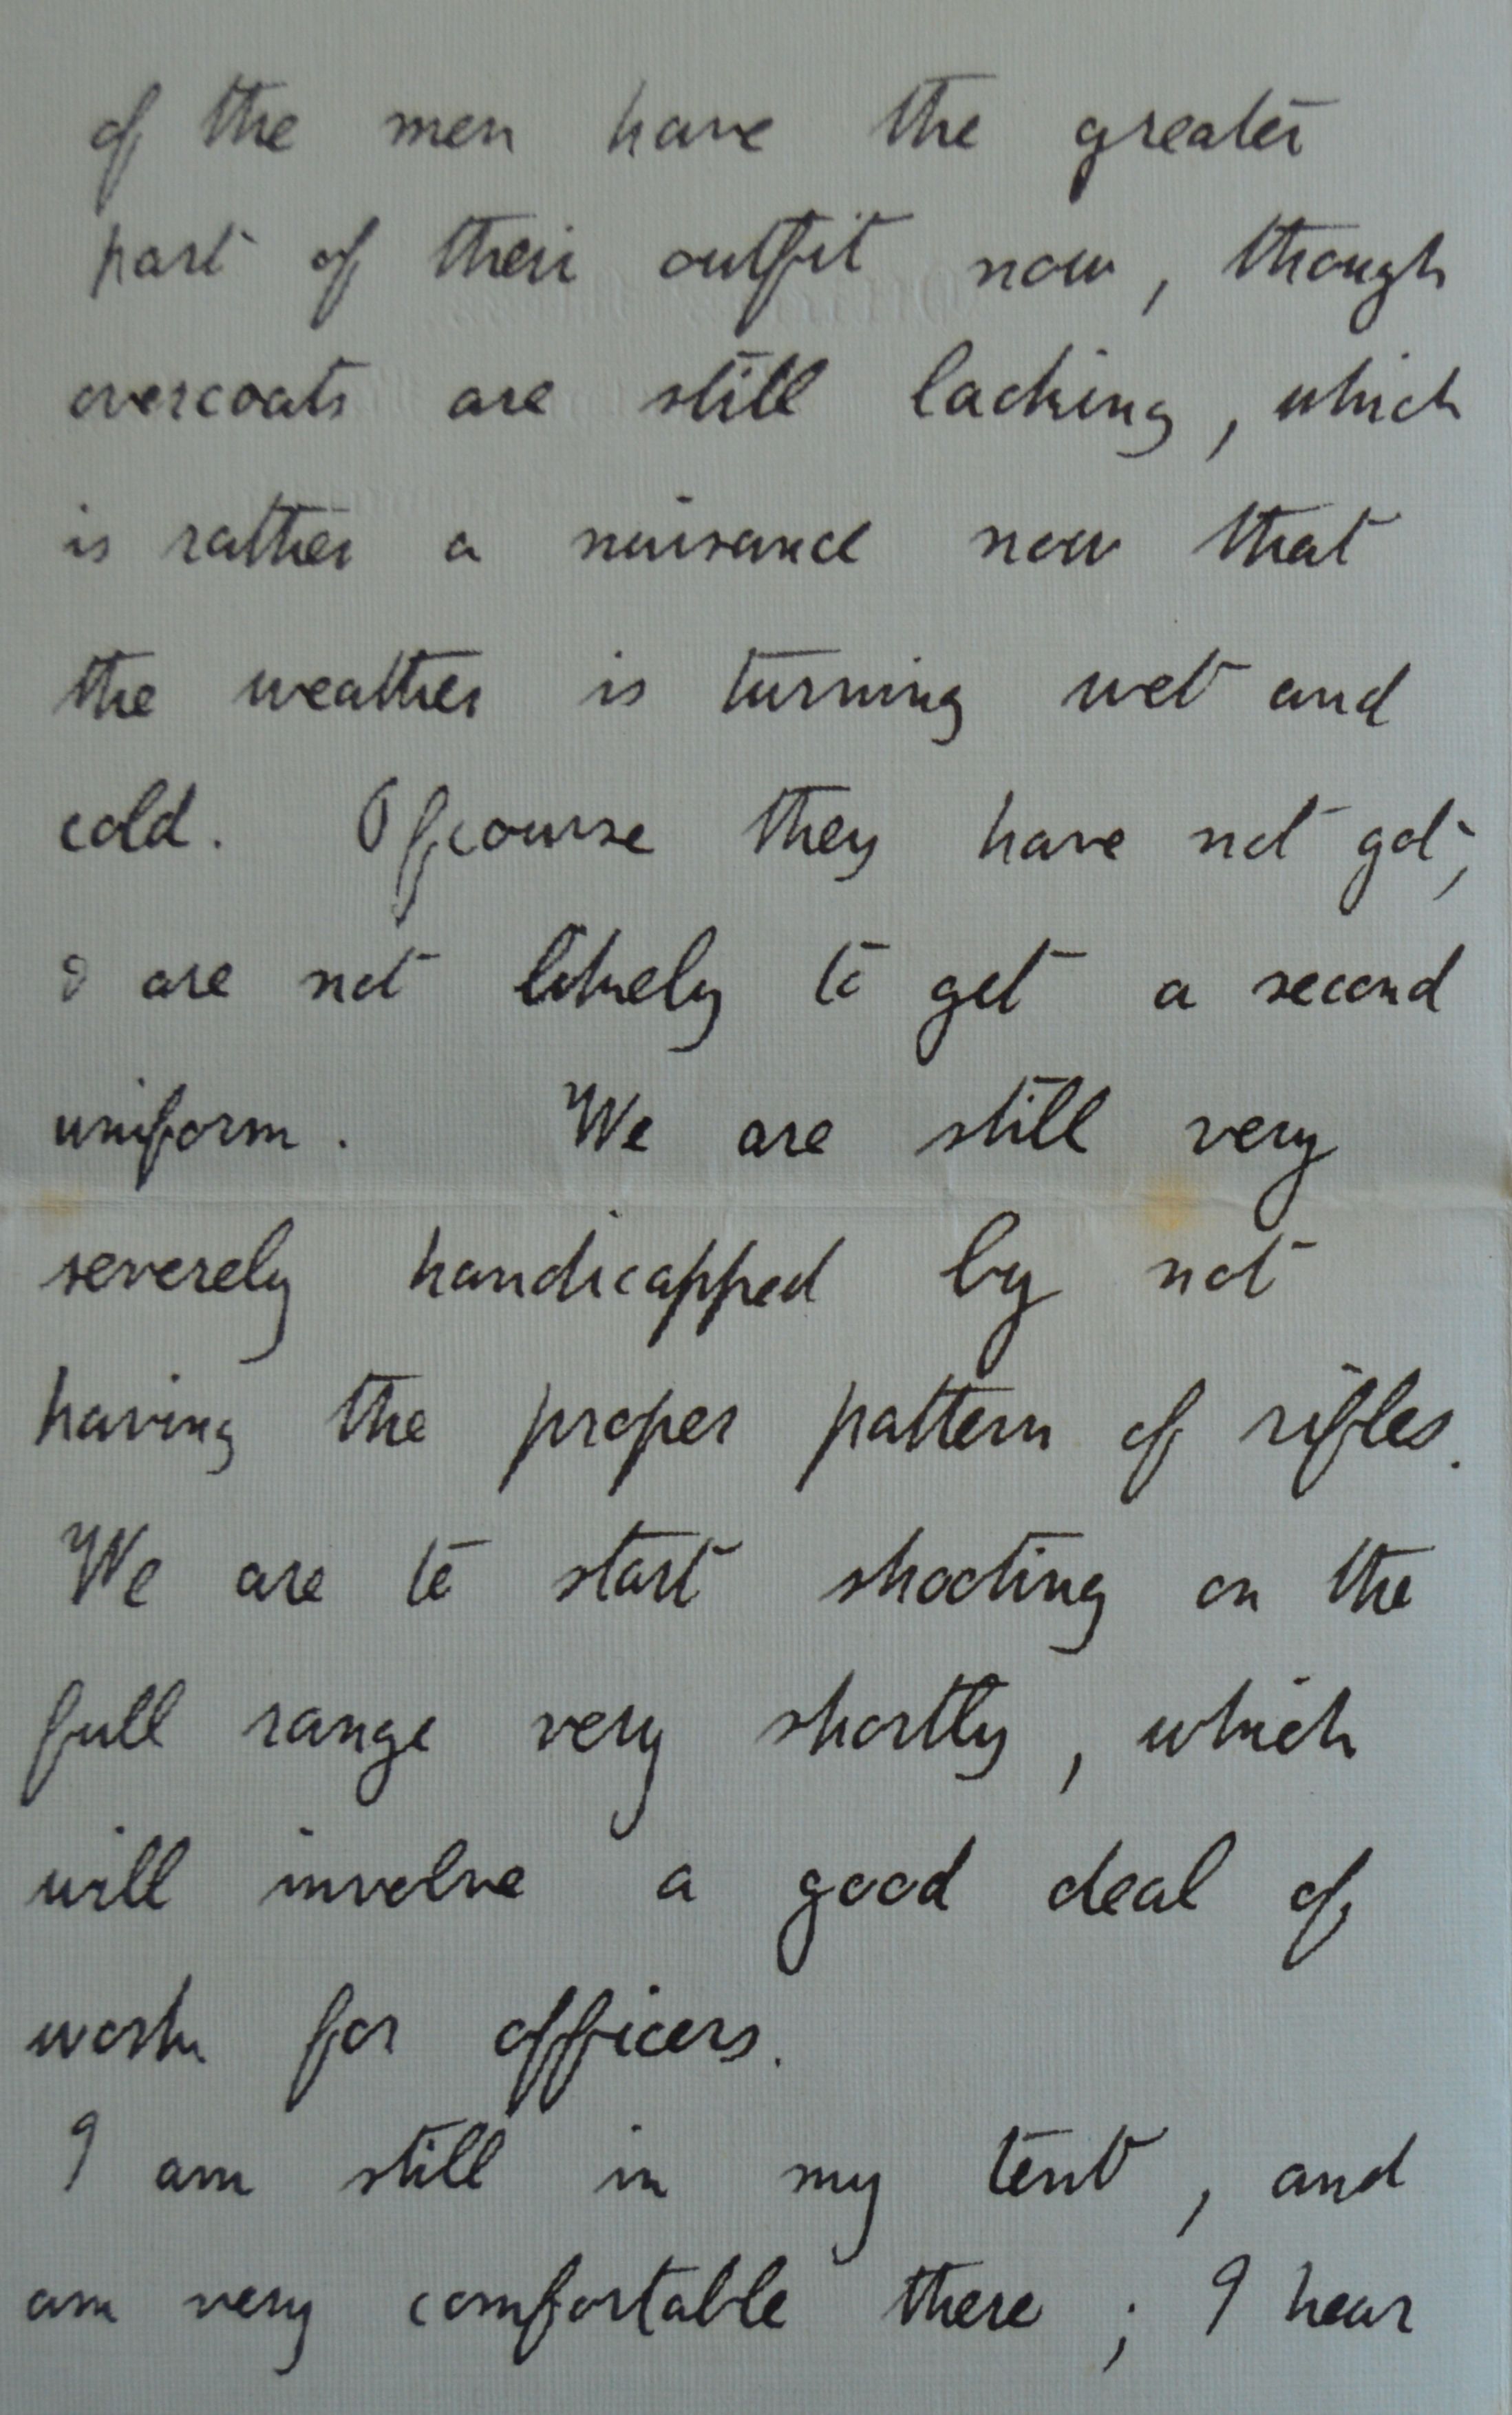 of the men have the greater
part of their outfit now, though
overcoats are still lacking, which
is rather a nuisance now that
the weather is turning wet and
cold. Ofcourse they have not got,
& are not likely to get a second
uniform. We are still very
severely handicapped by not
having the proper pattern of rifles.
We are to start shooting on the
full range very shortly, which
will involve a good deal of
work for officers.
I am still in my tent, and
am very comfortable there; I hear